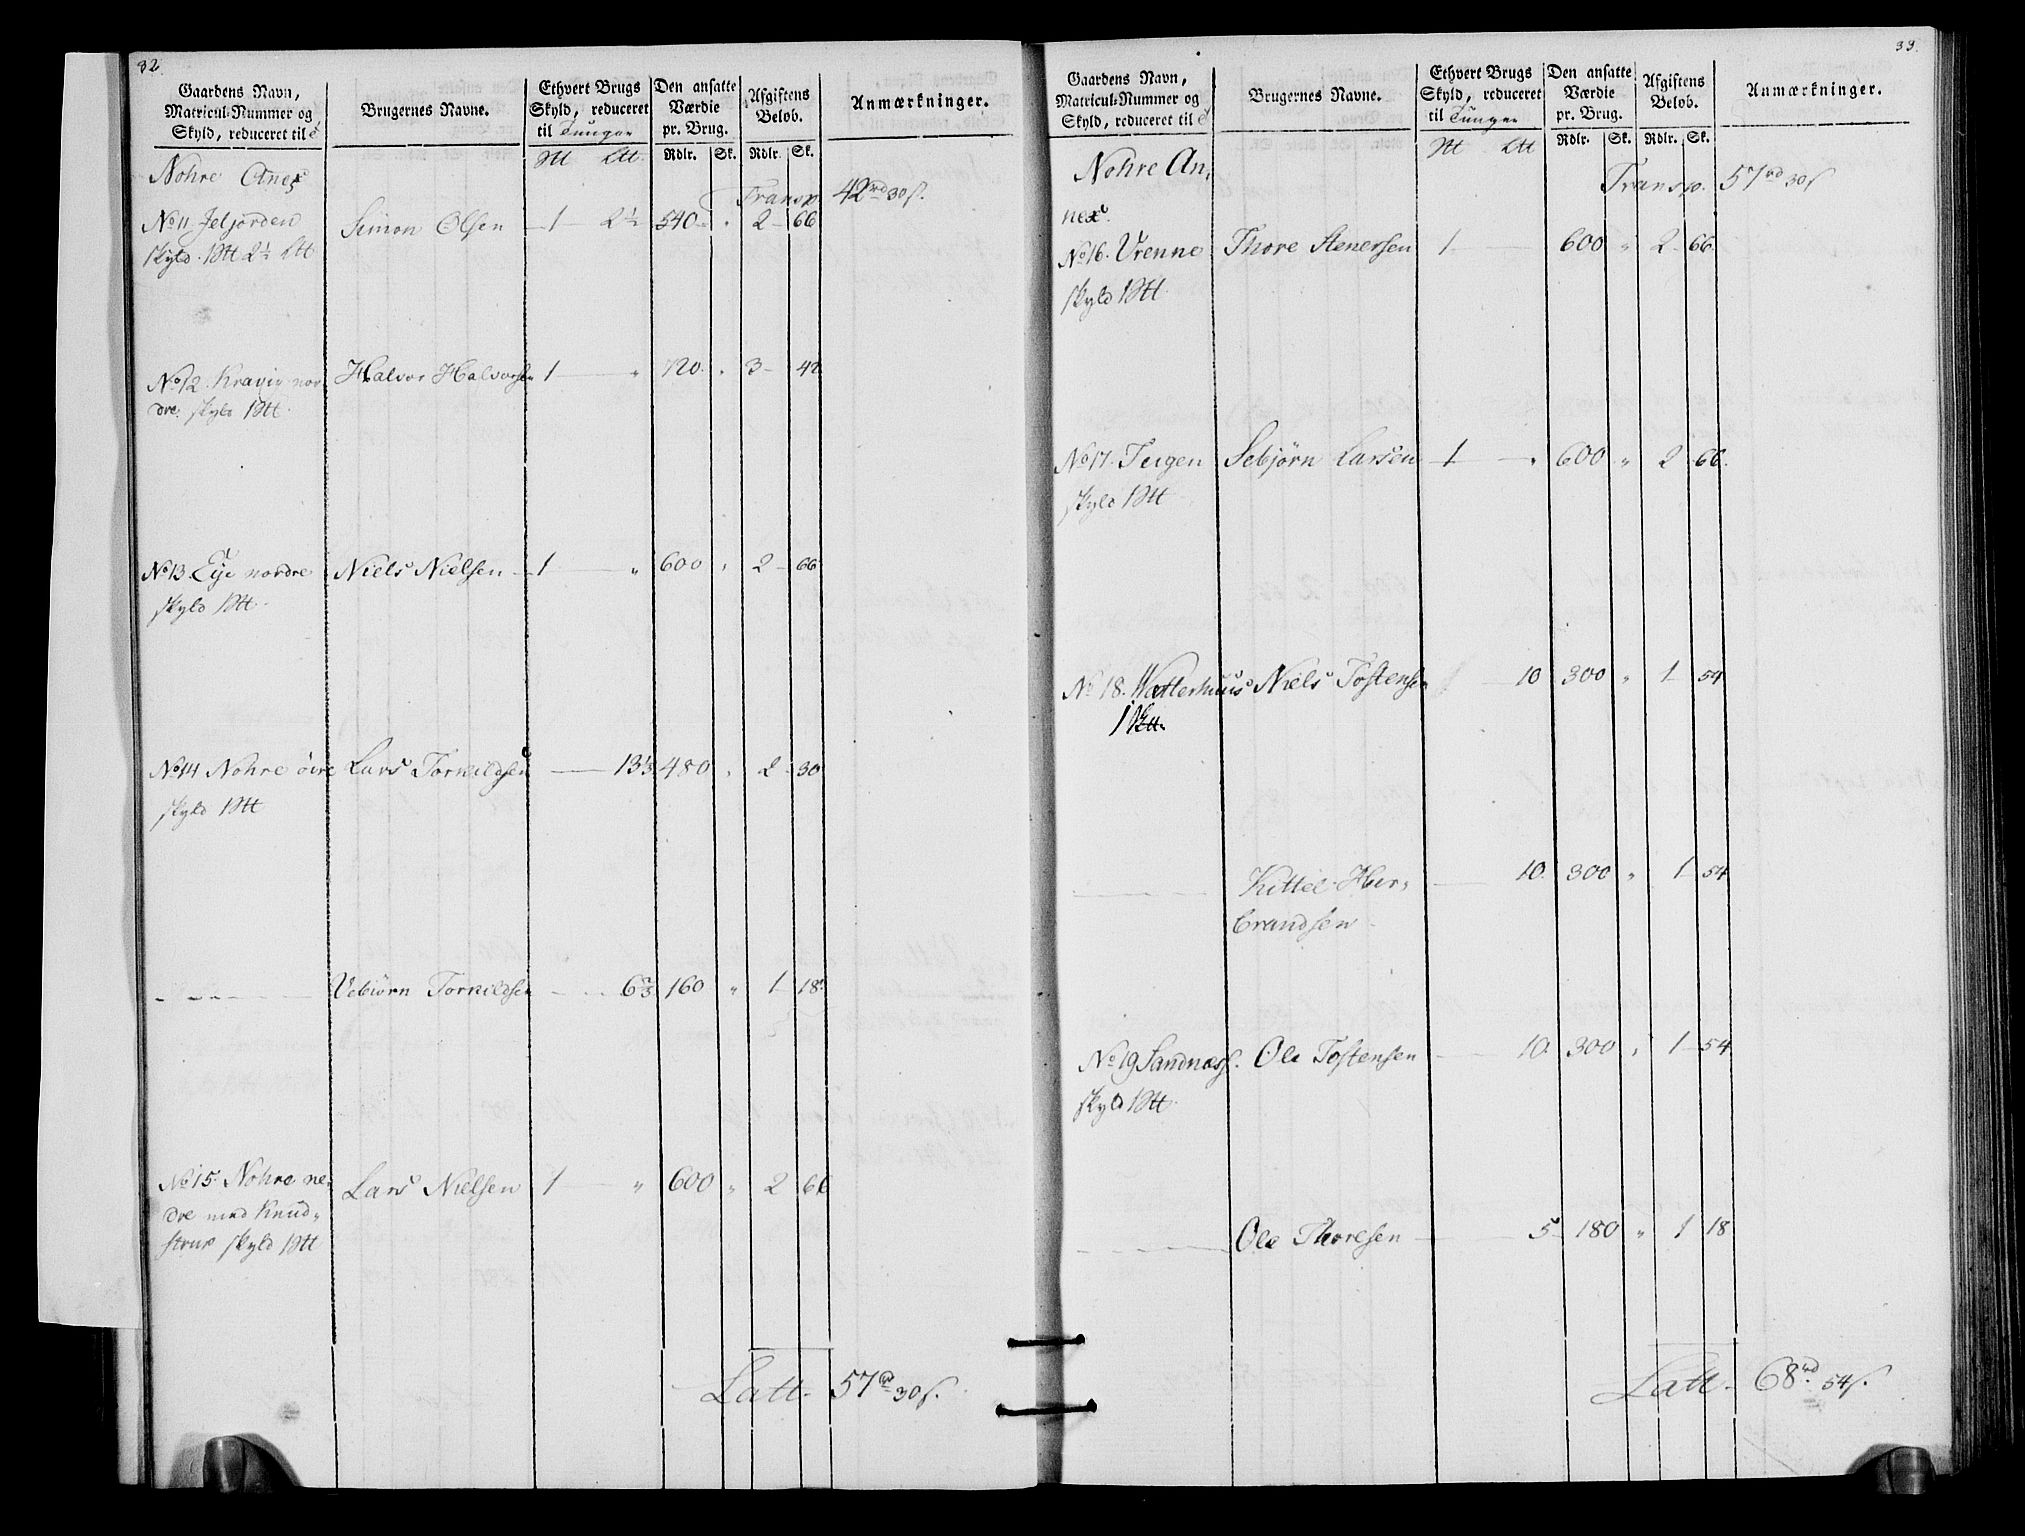 32.
Gaardens Navn, Matricul-Nummer og Skyld, reduceret til
Brugernes Navne.
Ethvert Brugs Skyld, reduceret til Tunger
Den ansatte Værdie pr. Brug.
Afgiftens Beløb.
Anmærkninger.
Htt Ltt Rdlr. Sk. Rdlr. Sk.
Nohre Anex
Transp. 42rd 30s.
No 11 Jeljorden Simon Olsen 1 2½ 540 " 2 66
skyld 1Htt 2½ Ltt
No 12. Kravig nor Halvor Halvorsen 1 " 720 " 3 42
dre. skyld 1Htt
No 13. Eije nordre Niels Nielsen 1 " 600 " 2 66
skyld 1Htt
No 14 Nohre övre Lars Torkildsen 13⅓ 480 " 2 30
skyld 1Htt
Vebiörn Torkildsen 6⅔ 160 " 1 18
No 15 Nohre ne- Lars Nielsen 1 " 600 " 2 66
dre med Knud-
strup skyld 1Htt
Latt. 57rd 30s.
33.
Gaardens Navn, Matricul-Nummer og Skyld, reduceret til
Brugernes Navne.
Ethvert Brugs Skyld, reduceret til Tunger
Den ansatte Værdie pr. Brug.
Afgiftens Beløb.
Anmærkninger.
Htt Ltt Rdlr. Sk. Rdlr. Sk.
Nohre An-
nex.
Transp. 57rd 30s
No 16. Vrenne Thore Stenersen 1 600 " 2 66
skyld 1Htt
No 17. Teigen Sebjørn Larsen 1 " 600 " 2 66.
skyld 1Htt
No 18. Watterhuus Niels Tostensen 10 300 " 1 54
Kittel Her-
brandsen 10. 300 " 1 54
No 19 Sandnæss. Ole Tostensen 10. 300 " 1 54
skyld 1Htt
Ole Thoresen 5 180 " 1 18
Latt. 68rd 54s.